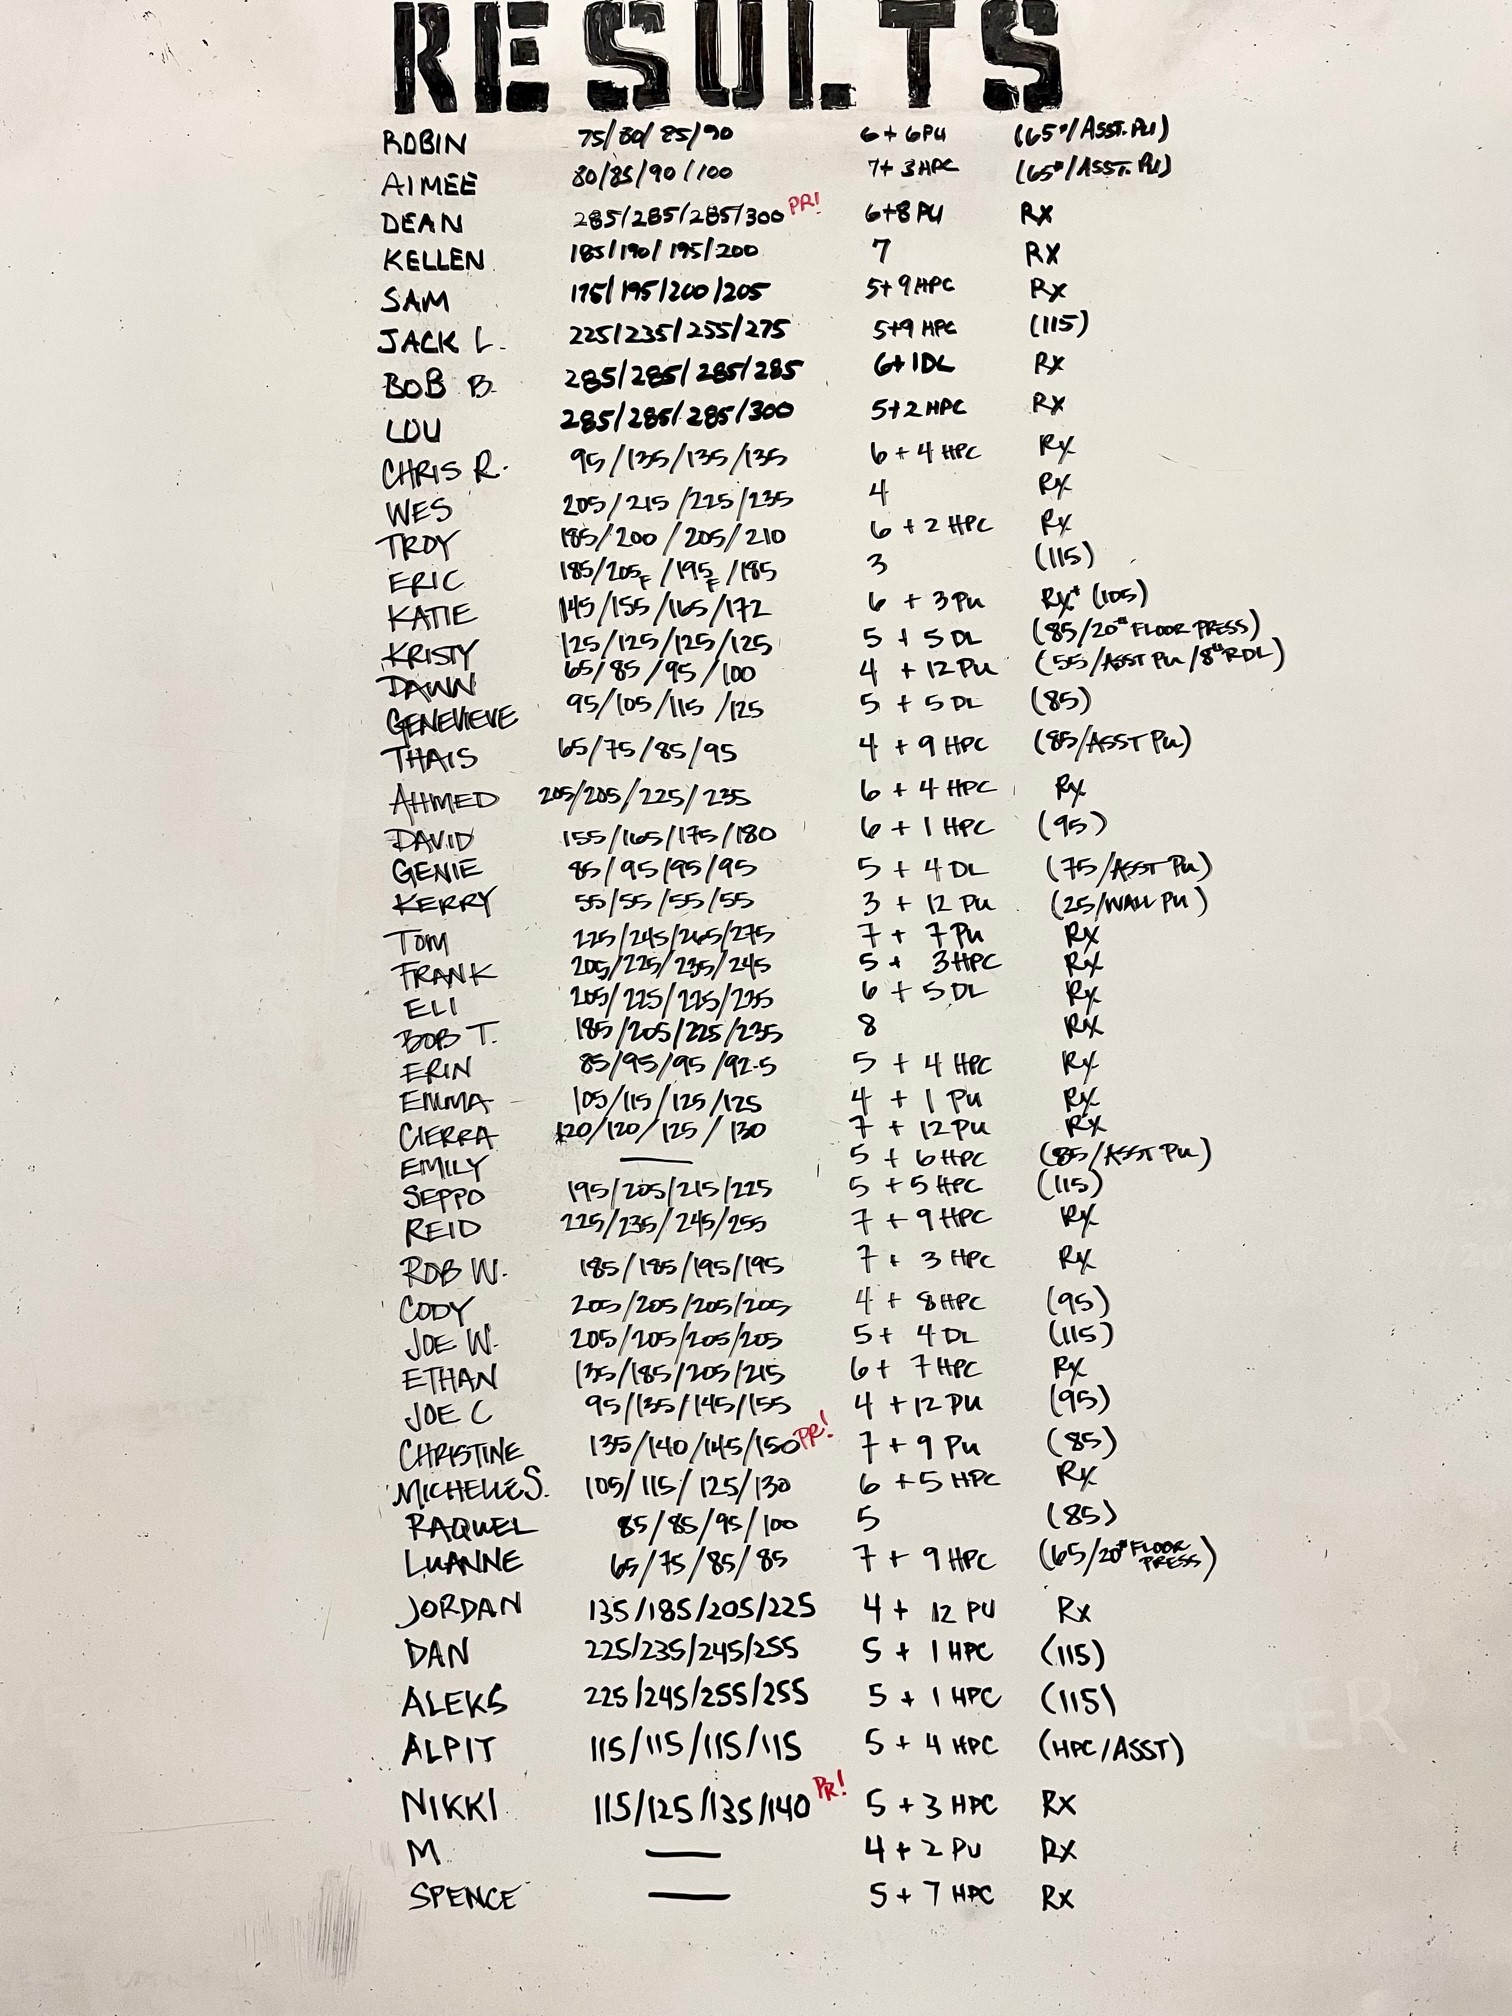 RESULTS
ROBIN 75/80/85/90 6+6PU (65#/ASST. PU)
AIMEE 80/85/90/100 7+3HPC (65#/ASST. PU)
DEAN 285/285/285/300 PR! 6+8 PU RX
KELLEN 185/190/195/200 7 RX
SAM 175/195/200/205 5+9HPC RX
JACK L. 225/235/255/275 5+9 HPC (115)
BOB B. 285/285/285/285 6+1DL RX
LOU 285/285/285/300 5+2HPC RX
CHRIS R. 95/135/135/135 6+4 HPC RX
WES 205/215/225/235 4 RX
TROY 185/200/205/210 6+2 HPC RX
ERIC 185/205F/195F/185 3 (115)
KATIE 145/155/165/172 6 + 3 PU RX+ (105)
KRISTY 125/125/125/125 5 + 5 DL (85/20# FLOOR PRESS)
DAWN 65/85/95/100 4 + 12 PU (55/ASST PU/8# RDL)
GENEVIEVE 95/105/115/125 5 + 5 DL (85)
THAIS 65/75/85/95 4 + 9 HPC (85/ASST PU)
AHMED 205/205/225/235 6 + 4 HPC RX
DAVID 155/165/175/180 6 + 1 HPC (95)
GENIE 85/95/95/95 5 + 4 DL (75/ASST PU)
KERRY 55/55/55/55 3 + 12 PU (25/WALL PU)
TOM 225/245/265/275 7 + 7 PU RX
FRANK 205/225/235/245 5 + 3HPC RX
ELI 205/225/225/235 6 + 5 DL RX
BOB T. 185/205/225/235 8 RX
ERIN 85/95/95/92.5 5 + 4 HPC RX
EMMA 105/115/125/125 4 + 1 PU RX
CIERRA 120/120/125/130 7 + 12 PU RX
EMILY — 5 + 6 HPC (85/ASST PU)
SEPPO 195/205/215/225 5 + 5 HPC (115)
REID 225/235/245/255 7 + 9 HPC RX
ROB W. 185/185/195/195 7 + 3 HPC RX
CODY 205/205/205/205 4 + 8HPC (95)
JOE W. 205/205/205/205 5 + 4 DL (115)
ETHAN 135/185/205/215 6 + 7 HPC RX
JOE C 95/135/145/155 4 + 12 PU (95)
CHRISTINE 135/140/145/150 PR! 7 + 9 PU (85)
MICHELLE S. 105/115/125/130 6 + 5 HPC RX
RAQUEL 85/85/95/100 5 (85)
LUANNE 65/75/85/85 7 + 9 HPC (65/20# FLOOR PRESS)
JORDAN 135/185/205/225 4 + 12 PU RX
DAN 225/235/245/255 5 + 1 HPC (115)
ALEKS 225/245/255/255 5 + 1 HPC (115)
ALPIT 115/115/115/115 5 + 4 HPC (HPC/ASST)
NIKKI 115/125/135/140 PR! 5 + 3 HPC RX
M — 4 + 2 PU RX
SPENCE — 5 + 7 HPC RX